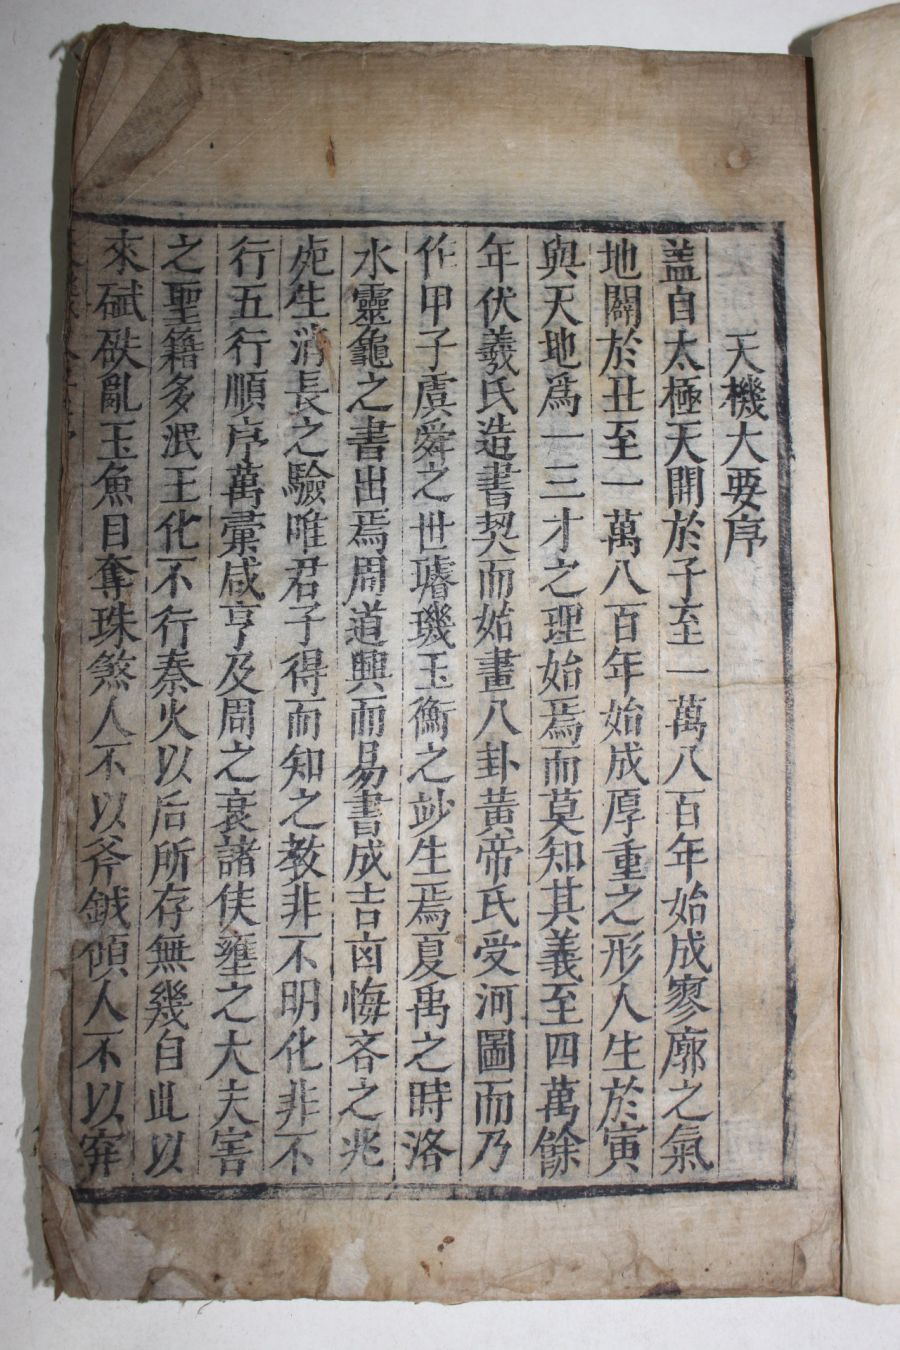 天機大要序
盖自太極天開於子至一萬八百年始成寥廓之氣
地闢於丑至一萬八百年始成厚重之形人生於寅
與天地爲一三才之理始焉而莫知其義至四萬餘
年伏羲氏造書契而始畫八卦黃帝氏受河圖而乃
作甲子虞舜之世璿璣玉衡之玅生焉夏禹之時洛
水靈龜之書出焉周道興而易書成吉凶悔吝之兆
死生消長之驗唯君子得而知之教非不明化非不
行五行順序萬彙咸亨及周之衰諸侯壅之大夫害
之聖籍多泯王化不行秦火以后所存無幾自此以
來碔砆亂玉魚目奪珠煞人不以斧鉞傾人不以穽